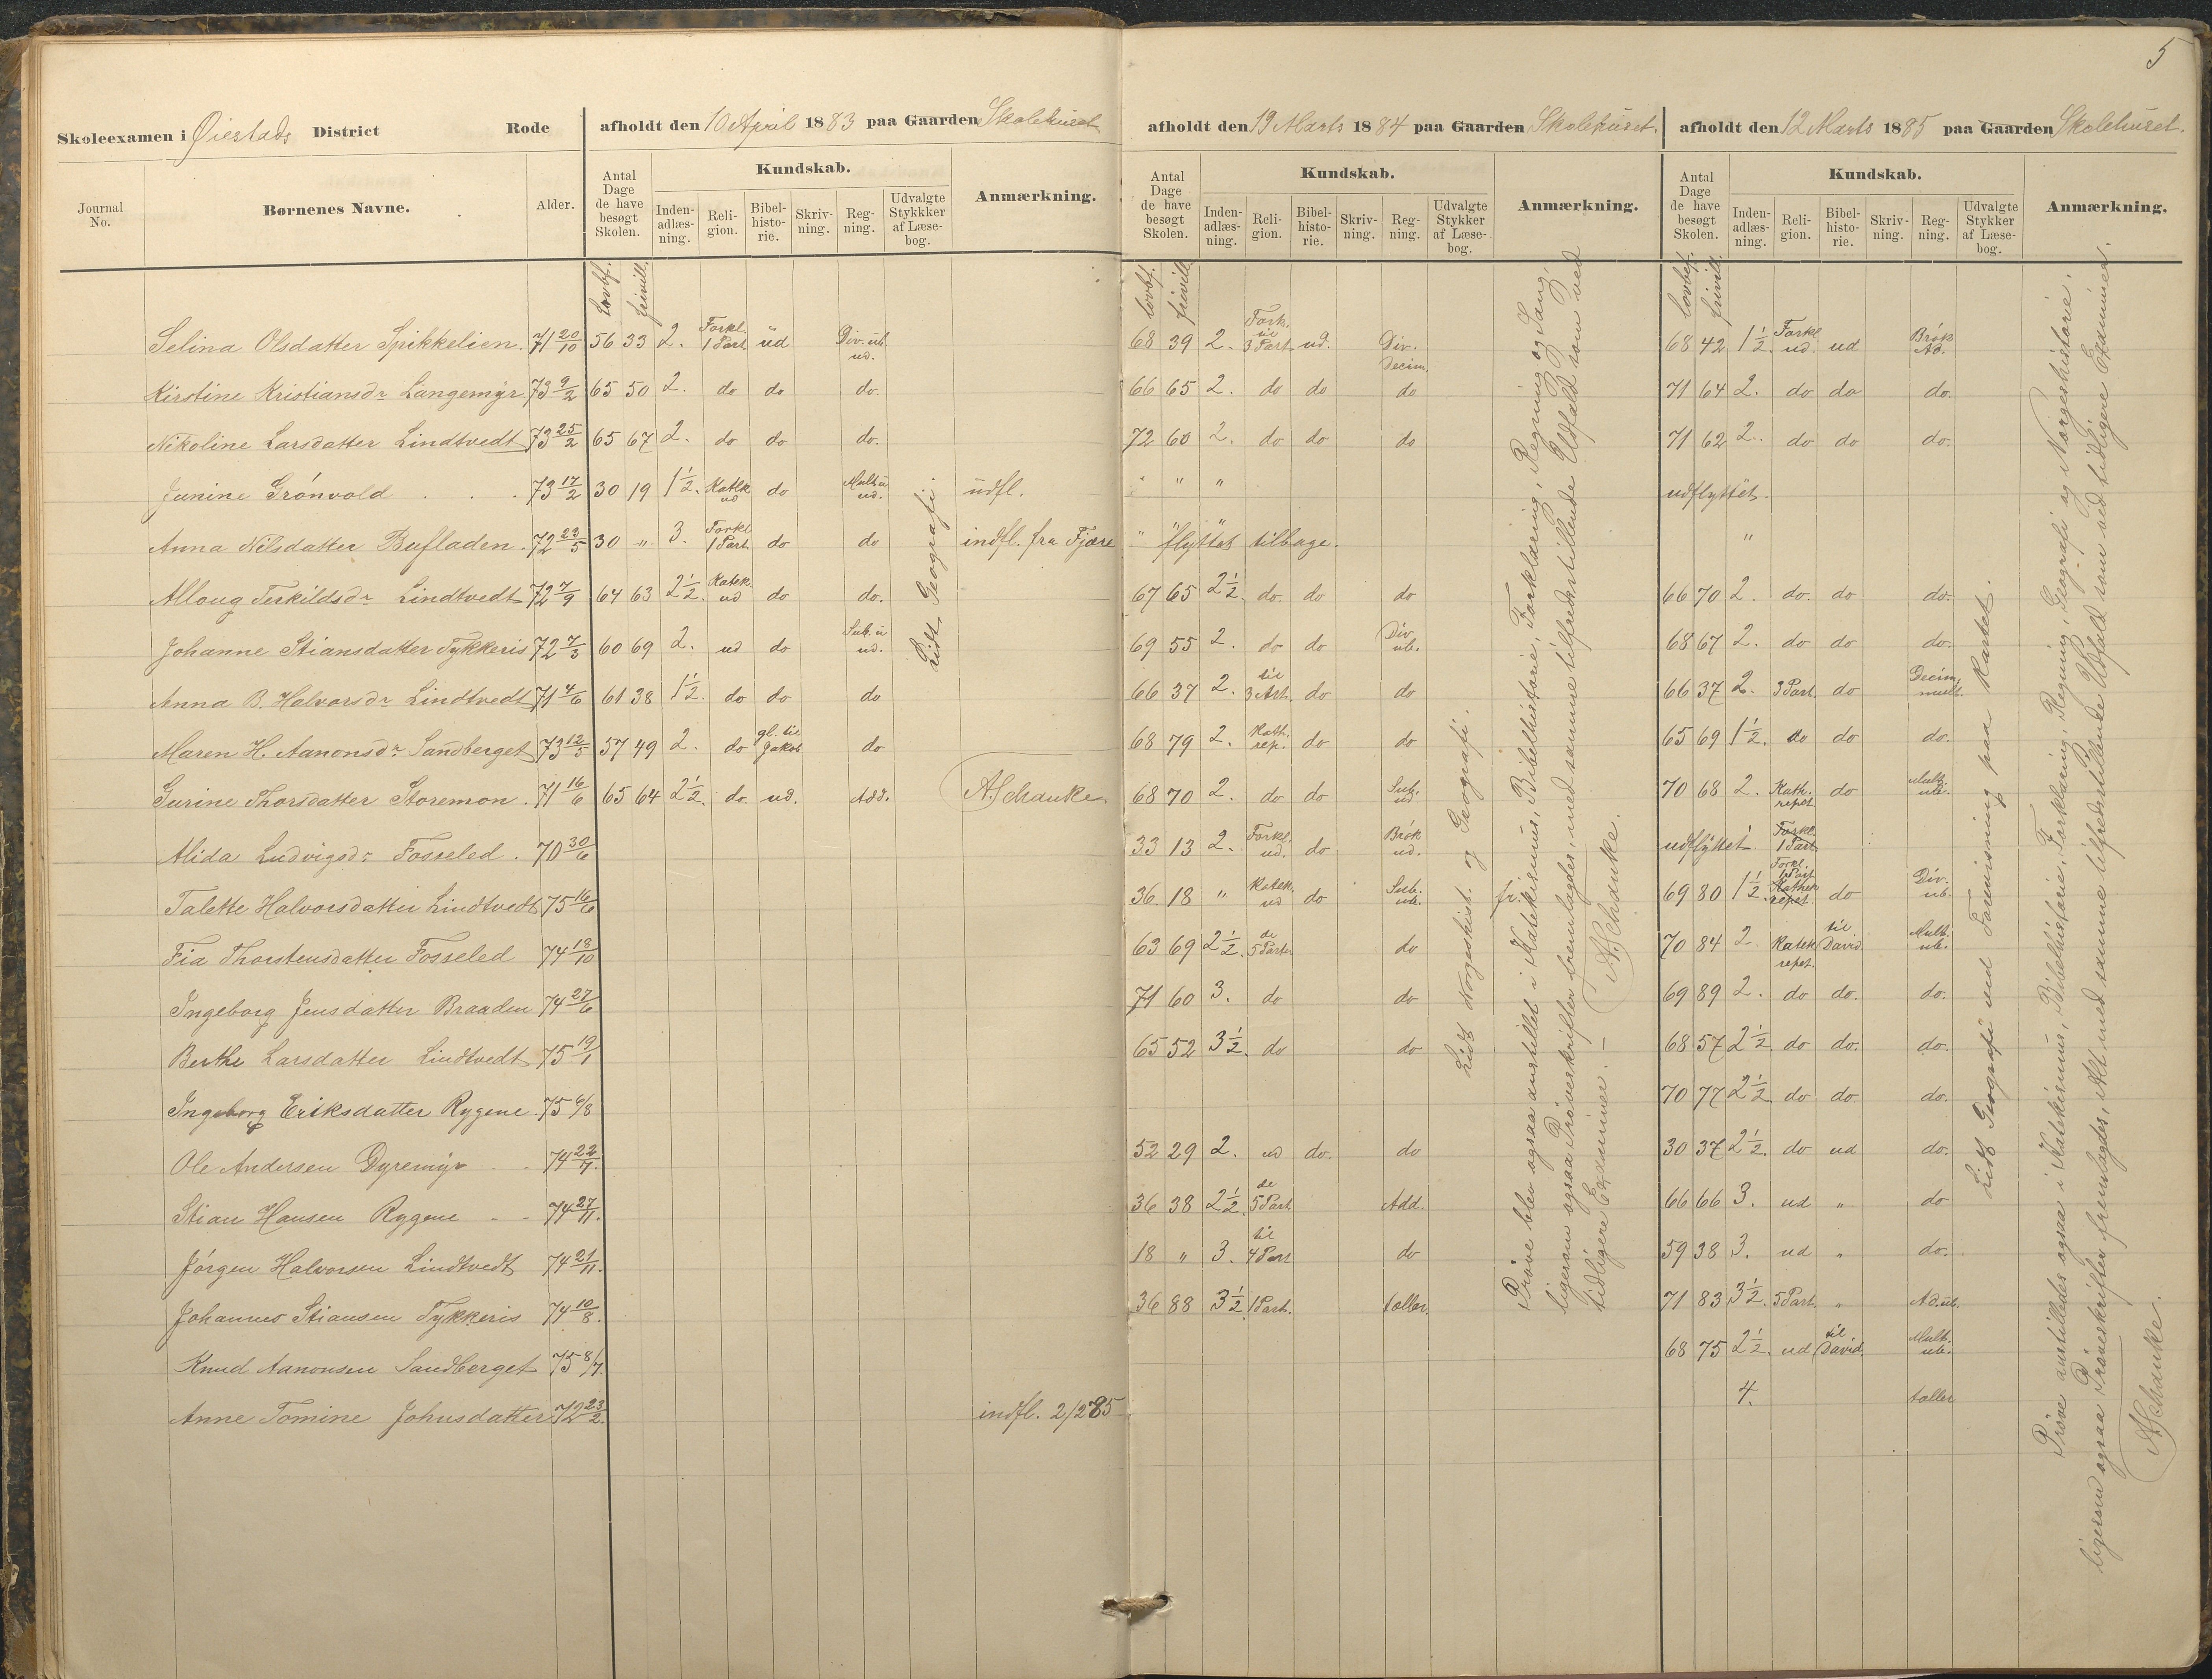 5
Skoleexamen i Øiestads District Rode afholdt den 10 April 1883 paa Gaarden Skolehuset
afholdt den 19 Marts 1884 paa Gaarden Skolehuset.
afholdt den 12 Marts 1885 paa Gaarden Skolehuset.
Journal No. Børnenes Navne. Alder. Antal Dage de have besøgt Skolen. Kundskab. Inden-adlæs-ning. Reli-gion. Bibel-histo-rie. Skriv-ning. Reg-ning. Udvalgte Stykkker af Læse-bog. Anmærkning.
Antal Dage de have besøgt Skolen. Kundskab. Inden-adlæs-ning. Reli-gion. Bibel-histo-rie. Skriv-ning. Reg-ning. Udvalgte Stykker af Læse-bog. Anmærkning.
Antal Dage de have besøgt Skolen. Kundskab. Inden-adlæs-ning. Reli-gion. Bibel-histo-rie. Skriv-ning. Reg-ning. Udvalgte Stykker af Læse-bog. Anmærkning.
lovbf. frivill. lovbf. frivill. lovbef. frivill.
Selina Olsdatter Spikkelien. 71 20/10 56 33 2. Forkl. 1 Part ud Div. ub. ud. 68 39 2. Fork. til 3 Part ud. Div. Decim. 68 42 1 1/2. Forkl ud. ud Brøk Ad.
Kirstine Kristiansdr Langemyr 73 9/2 65 50 2. do do do. 66 65 2. do do do 71 64 2. do do do.
Nikoline Larsdatter Lindtvedt 73 25/2 65 67 2. do do do. 72 60 2. do do do 71 62 2. do do do.
Junine Grönvold . . . 73 17/2 30 19 1 1/2. Katek ud do Mult u ud. udfl. " " " udflyttet.
Anna Nilsdatter Bufladen. 72 23/5 30 " 3. Forkl 1 Part do do indfl. fra Fjære " "flyttet tilbage. "
Alloug Terkildsdr Lindtvedt 72 7/9 64 63 2 1/2. Katek ud do do. 67 65 2 1/2. do. do do 66 70 2. do. do do.
Johanne Stiansdatter Tykkeris 72 7/3 60 69 2. ud do Sub. u ud. 69 55 2. do do Div ub. 68 67 2. do do do.
Anna B. Halvorsdr Lindtvedt 71 4/6 61 38 1 1/2. do do do 66 37 2. til 3 Art. do do 66 37 2. 3 Part. do Decim, mult.
Maren H. Aanonsdr Sandberget 73 12/5 57 49 2. do gl. til Jakob do 68 79 2. Kath. rep. do do 65 69 1 1/2. do do do.
Gurine Thorsdatter Storemon. 71 16/6 65 64 2 1/2. do. ud. Add. A Schanke. 68 70 2. do do Sub. ud 70 68 2. Kath. repet. do Mult. ub.
Alida Ludvigsdr Fosseled . 70 30/6 33 13 2. Forkl. ud. do Brøk ud. udflyttet Forkl. 1 Part
Talette Halvorsdatter Lindtvedt 75 16/6 36 18 " Katek. ud do Sub. ub. fr. 69 80 1 1/2. Forkl. 1 Part Kathek repet. do Div. ub.
Fia Thorstensdatter Fosseled 74 18/10 63 69 2 1/2. de 5 Parter do 70 84 2 Katek repet. til David Mult. ub.
Ingeborg Jensdatter Braaden 74 27/6 71 60 3. do do 69 89 2. do do. do.
Berthe Larsdatter Lindtvedt 75 19/1 65 52 3 1/2. do do 68 57 2 1/2. do do. do.
Ingeborg Eriksdatter Rygene. 75 6/8 70 77 2 1/2 do do do.
Ole Andersen Dyremyr - - 74 22/7. 52 29 2. ud do. do 30 37 2 1/2. do ud do.
Stian Hansen Rygene - - 74 27/11. 36 38 2 1/2. de 5 Part. Add. 66 66 3. ud " do
Jörgen Halvorsen Lindtvedt 74 21/11. 18 " 3. til 4 Part do 59 38 3. ud " do.
Johannes Stiansen Tykkeris 74 10/8. 36 88 3 1/2 1 Part. tæller. 71 83 3 1/2. 5 Part. " Ad. ub.
Knud Aanonsen Sandberget 75 8/7. 68 75 2 1/2. ud til David. Mult. ub.
Anne Tomine Johnsdatter 72 23/2. indfl. 2/2 85 4. tæller
Lidt Geografi.
Lidt Norgeshist. og Geografi.
Prøve blev ogsaa anstillet i Katekismus, Bibelhistorie, Forklaring, Regning og Sang,
ligesom ogsaa Prøveskrifter fremlagdes, med samme tilfredsstillende Udfald som ved
tidligere Examiner. —
A Schanke.
Lidt Geografi med Forevisning paa Kartet.
Prøve anstilledes ogsaa i Katekismus, Bibelhistorie, Forklaring, Regning, Geografi og Norgeshistorie,
ligesom ogsaa Prøveskrifter fremlagdes, Alt med samme tilfredsstillende Udfald som ved tidligere Examiner.
A Schanke.